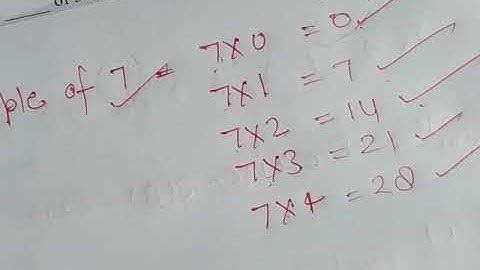 ple of 7 7x0 = 0
7x1 = 7
7x2 = 14
7x3 = 21
7x4 = 28